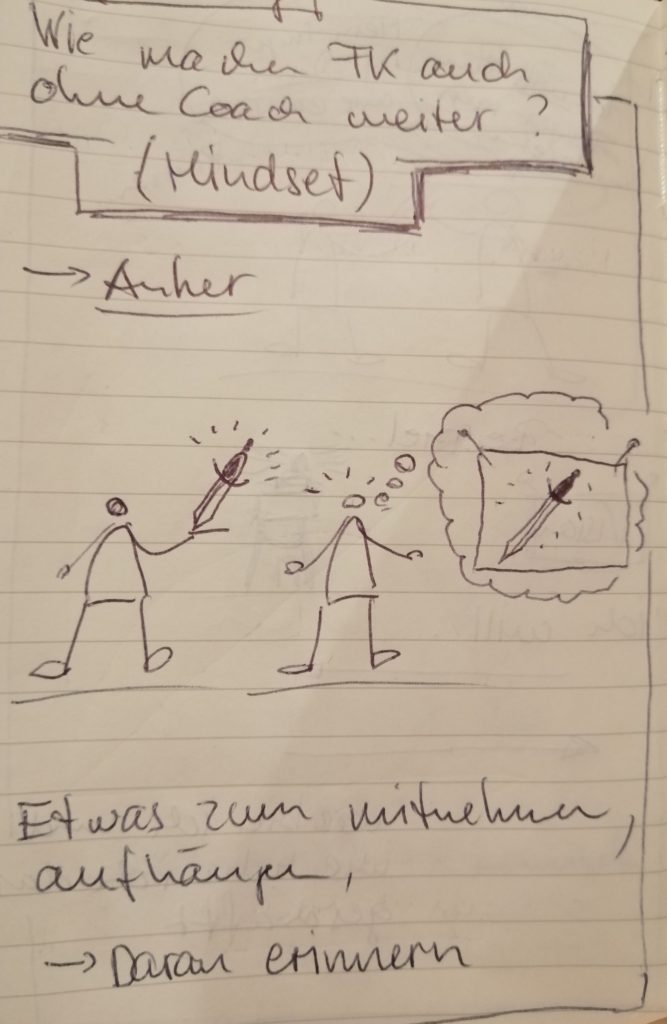 Wie machen FK auch
ohne Coach weiter?
(Mindset)
→ Anker
Etwas zum mitnehmen,
aufhängen,
→ Daran erinnern